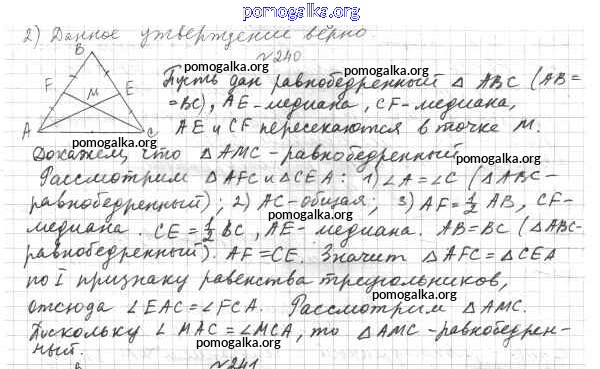 pomogalka.org
2) Данное утверждение верно.
B
№240
F
M
E
A
C
Пусть дан равнобедренный △ ABC (AB=
=BC), AE-медиана, CF-медиана,
AE и CF пересекаются в точке M.
Докажем, что △AMC-равнобедренный.
Рассмотрим △AFC и △CEA: 1) ∠A=∠C (△ABC-
равнобедренный); 2) AC-общая; 3) AF=1/2 AB, CF-
медиана. CE=1/2 BC, AE-медиана. AB=BC (△ABC-
равнобедренный). AF=CE. Значит △AFC=△CEA
по I признаку равенства треугольников,
отсюда ∠EAC=∠FCA. Рассмотрим △AMC.
Поскольку ∠MAC=∠MCA, то △AMC-равнобедрен-
ный.
№241
pomogalka.org
pomogalka.org
pomogalka.org
pomogalka.org
pomogalka.org
pomogalka.org
pomogalka.org
pomogalka.org
pomogalka.org